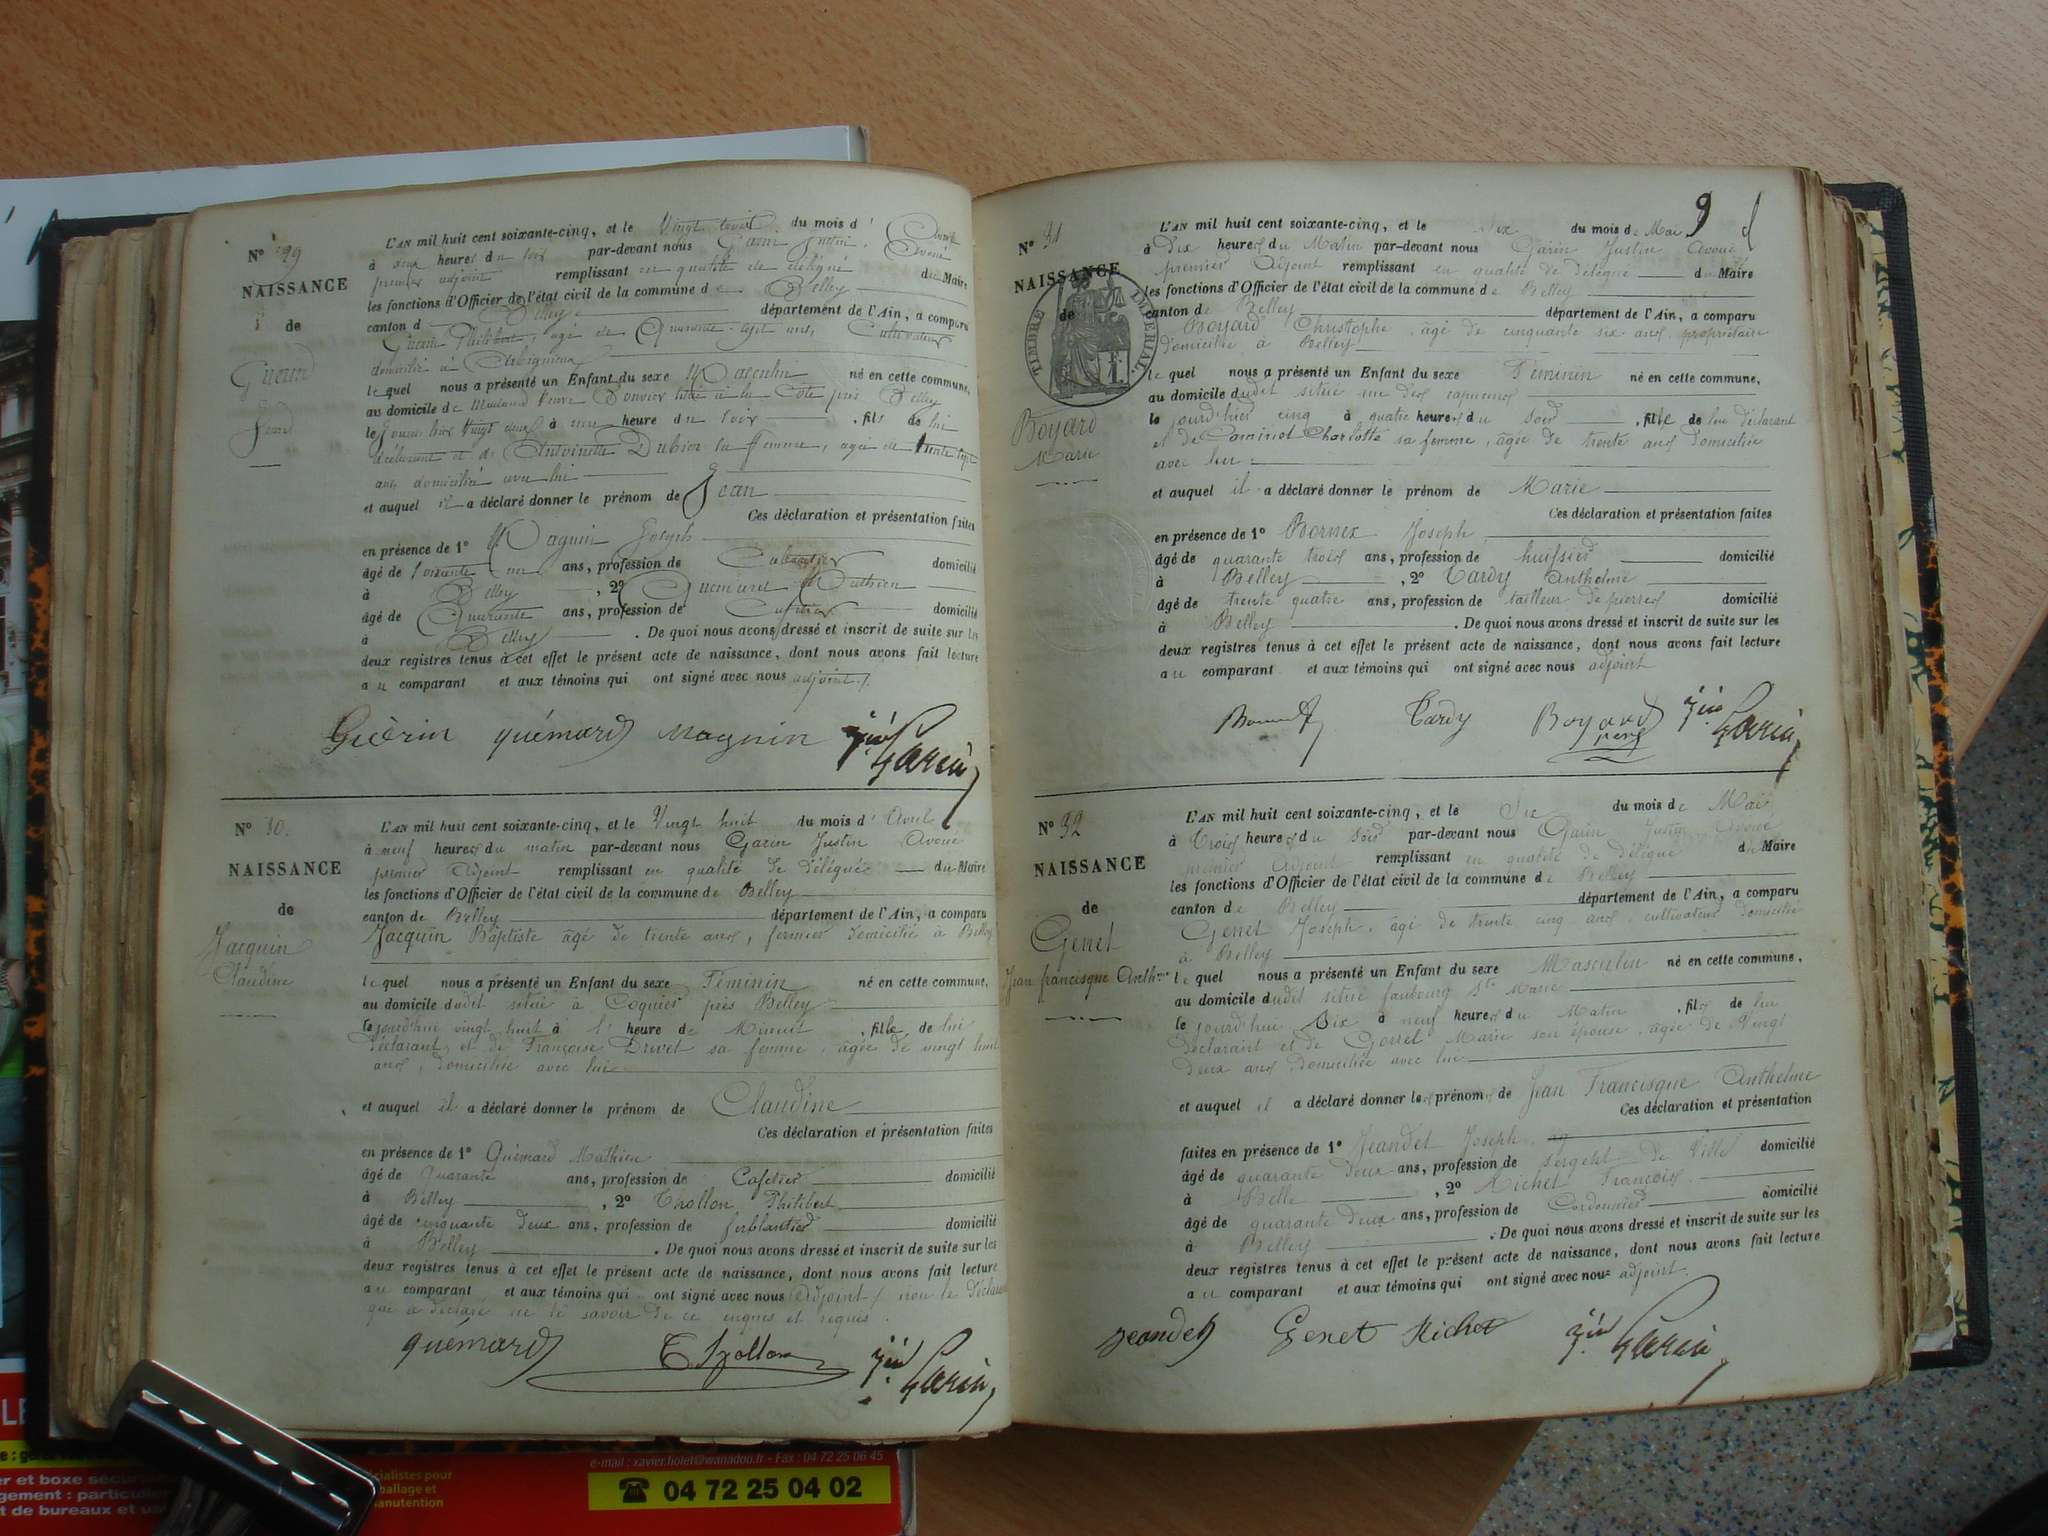 N° 29
NAISSANCE
de
Guérin
Jean
L'AN mil huit cent soixante-cinq, et le Vingt trois du mois d' Avril
à deux heures du soir par-devant nous Garin Justin, Avoué
premier adjoint remplissant en qualité de délégué du Maire
les fonctions d'Officier de l'état civil de la commune de Belley
canton de Belley département de l'Ain, a comparu
Guérin Philibert, âgé de Quarante-sept ans, Cultivateur
domicilié à Arbignieu
lequel nous a présenté un Enfant du sexe Masculin né en cette commune,
au domicile de Madame Veuve Bouvier situé à la Côte près Belley
le vingt deux à une heure du soir, fils de lui
déclarant et de Antoinette Dubien sa femme, âgée de trente sept
ans domiciliée avec lui
et auquel il a déclaré donner le prénom de Jean
Ces déclaration et présentation faites
en présence de 1° Magnin Joseph
âgé de soixante ans, profession de domicilié
à Belley, 2° Guémard Mathieu
âgé de Quarante ans, profession de Cafetier domicilié
à Belley. De quoi nous avons dressé et inscrit de suite sur les
deux registres tenus à cet effet le présent acte de naissance, dont nous avons fait lecture
au comparant et aux témoins qui ont signé avec nous adjoint.
Guèrin quémard magnin jin Garin
N° 30.
NAISSANCE
de
Jacquin
Claudine
L'AN mil huit cent soixante-cinq, et le Vingt huit du mois d' Avril
à neuf heures du matin par-devant nous Garin Justin Avoué
premier Adjoint remplissant en qualité de Déléguée du Maire
les fonctions d'Officier de l'état civil de la commune de Belley
canton de Belley département de l'Ain, a comparu
Jacquin Baptiste âgé de trente ans, fermier domicilié à Belley
lequel nous a présenté un Enfant du sexe Féminin né en cette commune,
au domicile dudit situé à Coquier près Belley
le jourd'hui vingt huit à 1 heure de Minuit, fille de lui
déclarant et de Françoise Drivet sa femme, âgée de vingt huit
ans, domiciliée avec lui
et auquel il a déclaré donner le prénom de Claudine
Ces déclaration et présentation faites
en présence de 1° Guémard Mathieu
âgé de Quarante ans, profession de Cafetier domicilié
à Belley, 2° Thollon Philibert
âgé de cinquante deux ans, profession de ferblantier domicilié
à Belley. De quoi nous avons dressé et inscrit de suite sur les
deux registres tenus à cet effet le présent acte de naissance, dont nous avons fait lecture
au comparant et aux témoins qui ont signé avec nous Adjoint non le déclarant
que a déclaré ne le savoir de ce enquis et requis.
quémard Thollon jin Garin
9
N° 31
NAISSANCE
de
TIMBRE IMPÉRIAL
Boyard
Marie
L'AN mil huit cent soixante-cinq, et le Six du mois de Mai
à Dix heures du Matin par-devant nous Garin Justin Avoué
premier Adjoint remplissant en qualité de Délégué du Maire
les fonctions d'Officier de l'état civil de la commune de Belley
canton de Belley département de l'Ain, a comparu
Boyard Christophe âgé de cinquante six ans, propriétaire
domicilié à Belley
lequel nous a présenté un Enfant du sexe Féminin né en cette commune,
au domicile dudit situé rue des capucins
le jourd'hier cinq à quatre heures du soir, fille de lui déclarant
et de Cominot Charlotte sa femme, âgée de trente ans domiciliée
avec lui
et auquel il a déclaré donner le prénom de Marie
Ces déclaration et présentation faites
en présence de 1° Bornex Joseph
âgé de quarante trois ans, profession de huissier domicilié
à Belley, 2° Tardy Anthelme
âgé de trente quatre ans, profession de tailleur de pierres domicilié
à Belley. De quoi nous avons dressé et inscrit de suite sur les
deux registres tenus à cet effet le présent acte de naissance, dont nous avons fait lecture
au comparant et aux témoins qui ont signé avec nous adjoint
Tardy Boyard père jin Garin
N° 32
NAISSANCE
de
Genet
Jean francisque Anth.me
L'AN mil huit cent soixante-cinq, et le Six du mois de Mai
à Trois heures du Soir par-devant nous Garin Justin Avoué
premier Adjoint remplissant en qualité de délégué du Maire
les fonctions d'Officier de l'état civil de la commune de Belley
canton de Belley département de l'Ain, a comparu
Genet Joseph, âgé de trente cinq ans, cultivateur domicilié
à Belley
lequel nous a présenté un Enfant du sexe Masculin né en cette commune,
au domicile dudit situé faubourg Ste Marie
le jourd'hui Six à neuf heures du Matin, fils de lui
déclarant et de Gorret Marie son épouse, âgée de Vingt
deux ans domiciliée avec lui
et auquel il a déclaré donner les prénoms de Jean Francisque Anthelme
Ces déclaration et présentation
faites en présence de 1° Jeandet Joseph
âgé de quarante deux ans, profession de sergent de Ville domicilié
à Belle, 2° Michet François
âgé de quarante deux ans, profession de Cordonnier domicilié
à Belley. De quoi nous avons dressé et inscrit de suite sur les
deux registres tenus à cet effet le présent acte de naissance, dont nous avons fait lecture
au comparant et aux témoins qui ont signé avec nous adjoint.
Jeandet Genet Michet jin Garin
e-mail : xavier.holet@wanadoo.fr - Fax : 04 72 25 06 45
☎ 04 72 25 04 02
écialistes pour
ballage et
anutention
er et boxe sécuris
gement : particulier
t de bureaux et us